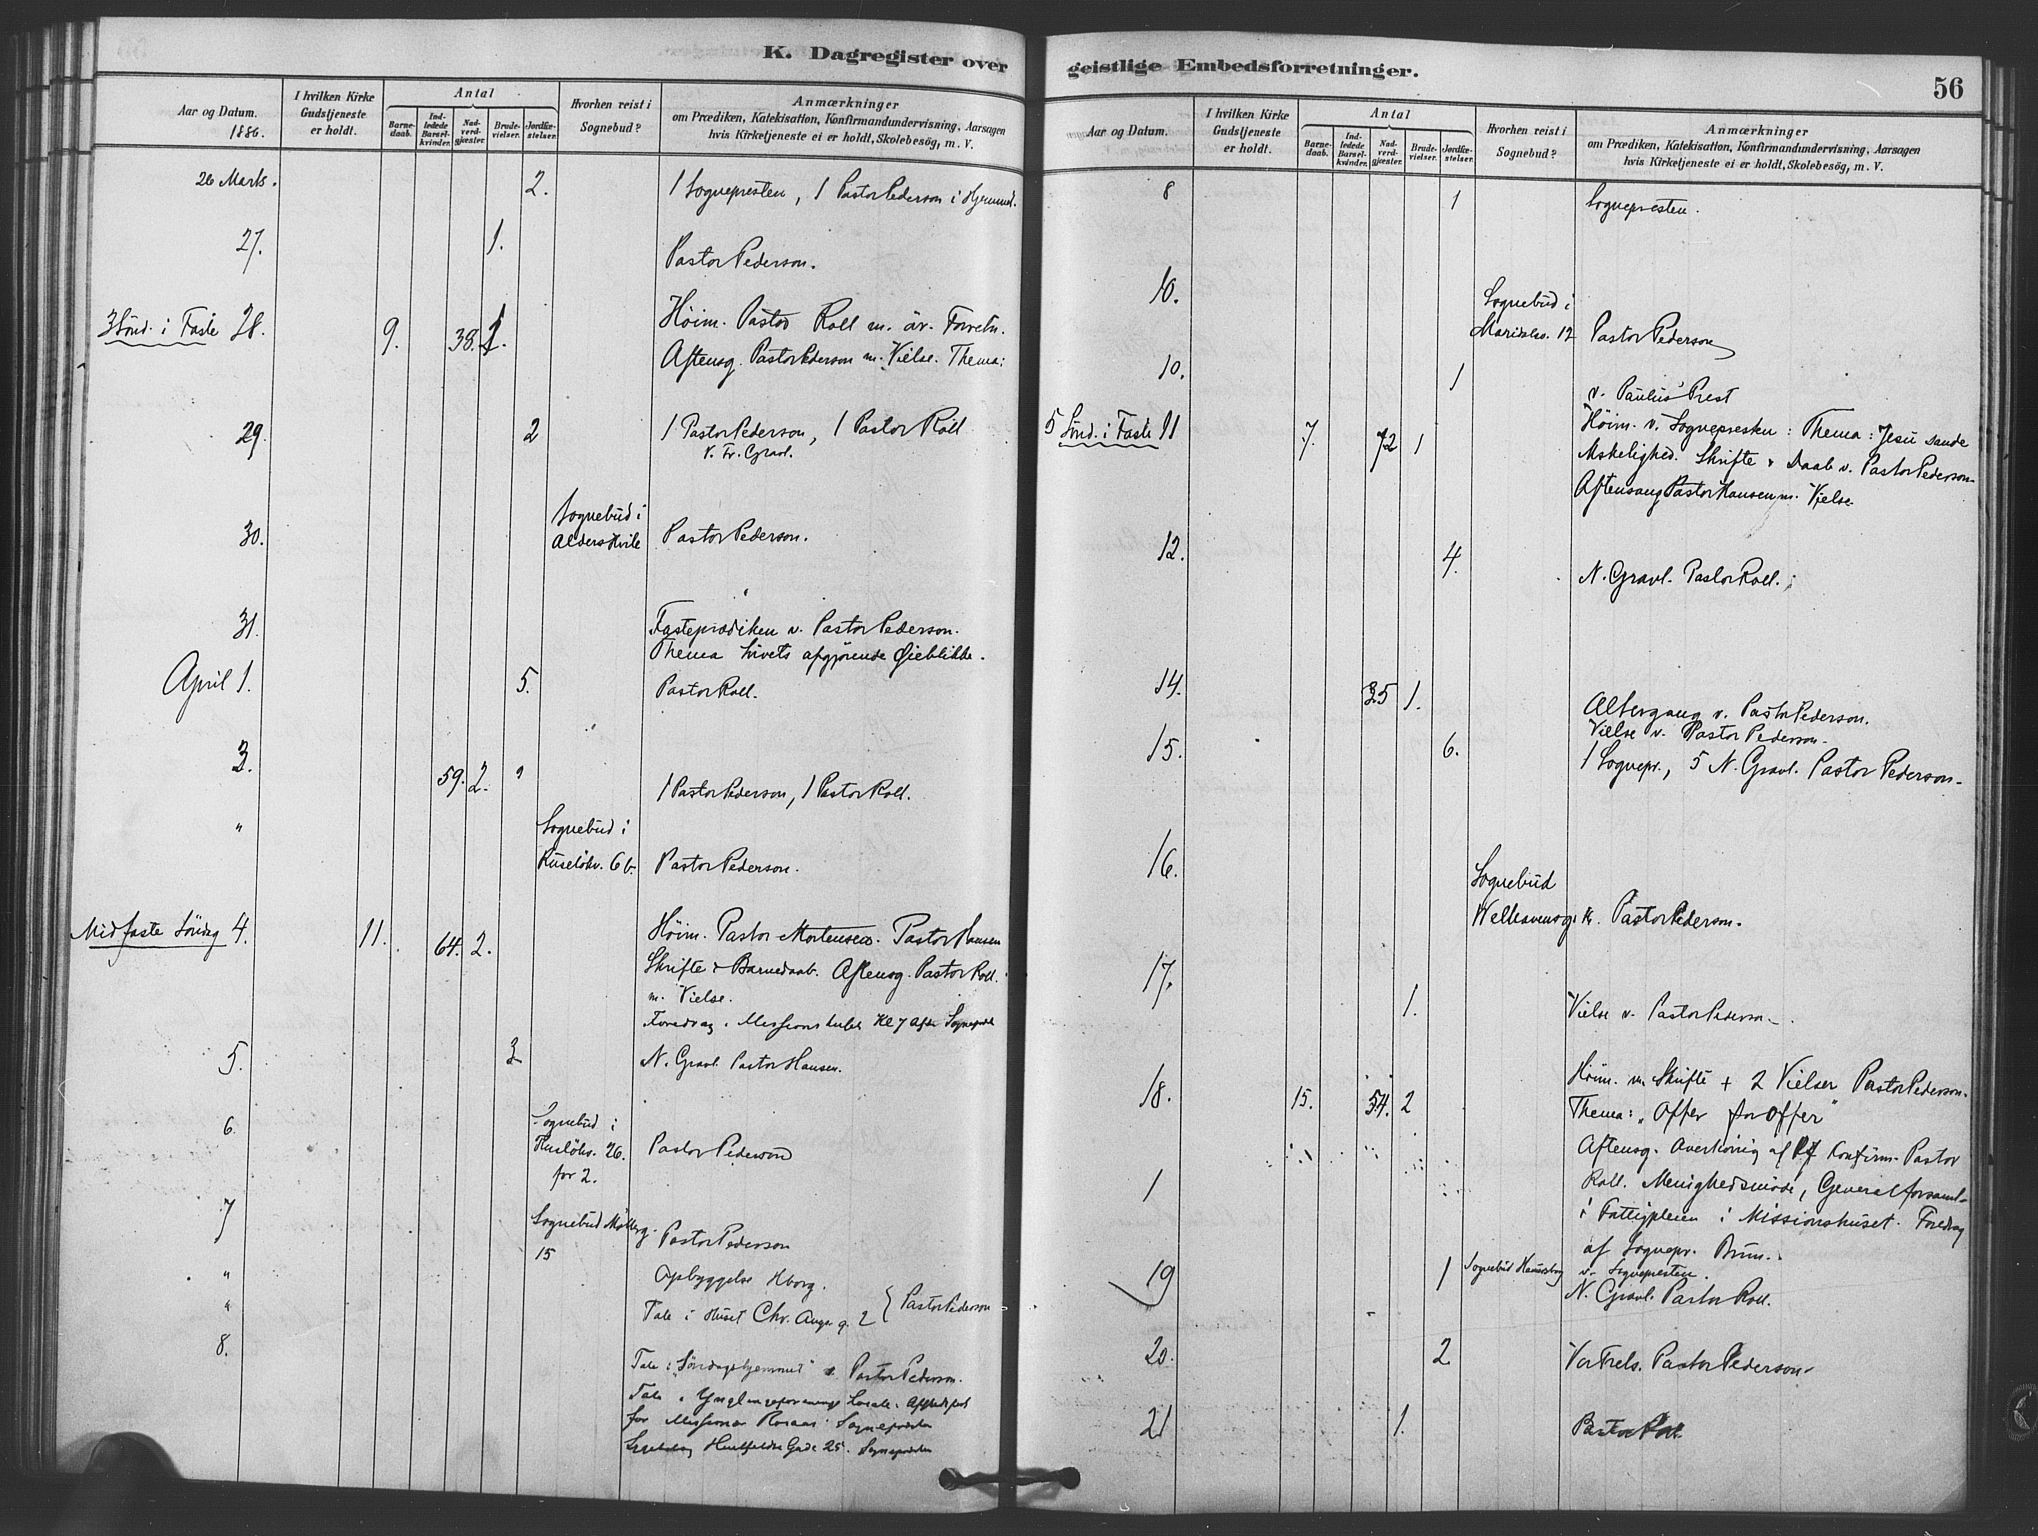 K. Dagregister over
Aar og Datum.
1886.
I hvilken Kirke
Gudstjeneste
er holdt.
Antal
Barne-
daab.
Ind-
ledede
Barsel-
kvinder.
Nad-
verd-
gjæster.
Brude-
vielser.
Jordfæ-
stelser.
Hvorhen reist i
Sognebud?
Anmærkninger
om Prædiken, Katekisation, Konfirmandundervisning, Aarsagen
hvis Kirketjeneste ei er holdt, Skolebesög, m. V.
26 Marts. 2. 1 Sognepresten, 1 Pastor Pederson i Hjemmet.
27. 1. Pastor Pederson.
3 Sönd. i Faste 28. 9. 38. 1. Höim. Pastor Roll m. öv. Forretn.
Aftensg. Pastor Pederson m. Vielse. Thema:
29. 2 1 Pastor Pederson, 1 Pastor Roll
V. Fr. Gravl.
30. Sognebud i
Alders Hvile Pastor Pederson.
31. Fasteprædiken v. Pastor Pederson.
Thema Livets afgjørende Øieblikke.
April 1. 5. Pastor Roll.
3. 59. 2. 1 Pastor Pederson, 1 Pastor Roll.
" Sognebud i
Ruselökv. 6 b. Pastor Pederson.
Midfaste Söndag 4. 11. 64. 2. Höim. Pastor Mortensen. Pastor Hansen
Skrifte & Barnedaab. Aftensg. Pastor Roll.
m. Vielse.
Foredrag i Missionshuset Kl 7 Aft.
5. 3 N. Gravl. Pastor Hansen.
6. Sognebud i
26.
for 2. Pastor Pederson
7 Sognebud
15 Pastor Pederson
" Opbyggelse Hborg.
" Tale i Huset Chr. Augs. g. 2 Pastor Pederson
8. Tale i "Söndagshjemmet" v. Pastor Pederson.
Tale i Ynglingeforenings Lokale. Afskedsfest
for Missionær Sognepresten
Gade 25. Sognepresten
geistlige Embedsforretninger.
56
Aar og Datum.
I hvilken Kirke
Gudstjeneste
er holdt.
Antal
Barne-
daab.
Ind-
ledede
Barsel-
kvinder.
Nad-
verd-
gjæster.
Brude-
vielser.
Jordfæ-
stelser.
Hvorhen reist i
Sognebud?
Anmærkninger
om Prædiken, Katekisation, Konfirmandundervisning, Aarsagen
hvis Kirketjeneste ei er holdt, Skolebesög, m. V.
8 1 Sognepresten.
10. Sognebud i
Maridalsv. 12 Pastor Pederson
10. 1 v. Paulus' Prest
5 Sönd. i Faste 11 7. 72 1 Höim. v. Sognepresten: Thema: Jesu sande
Mskelighed. Skrifte & Daab v. Pastor Pederson
Aftensang Pastor Hansen m. Vielse.
12. 4. N. Gravl. Pastor Roll.
14. 35 1. Altergang v. Pastor Pederson.
Vielse v. Pastor Pederson.
15. 6. 1 Sognepr., 5 N. Gravl. Pastor Pederson.
16. Sognebud
Welhavensg. Pastor Pederson.
17. 1. Vielse v. Pastor Pederson
18. 15. 54. 2 Höim. m. Skrifte + 2 Vielser Pastor Pederson.
Thema: "Offer for Offer"
Aftensg. Overhöring af Konfirm. Pastor
1 Roll. Menighedsmöde, Generalforsaml.
i Fattigpleien i Missionshuset. Foredrag
af Sognepr. Brun.
v. Sognepresten.
19 1 Sognebud N. Gravl. Pastor Roll.
20. 2 Vor Frels. Pastor Pederson.
21 1. Pastor Roll